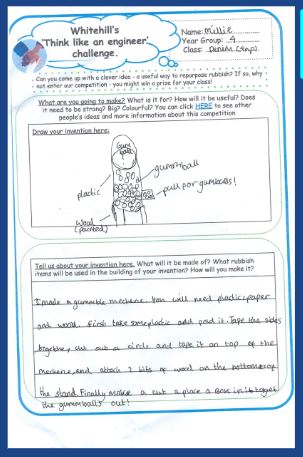 Whitehill's
'Think like an engineer'
challenge.
Name: Millie
Year Group: 4
Class:
Can you come up with a clever idea - a useful way to repurpose rubbish? If so, why
not enter our competition - you might win a prize for your class!
What are you going to make? What is it for? How will it be useful? Does
it need to be strong? Big? Colourful? You can click HERE to see other
people's ideas and more information about this competition
Draw your invention here:
Gum
gummball
plastic
pull for gumballs!
Wood
(painted)
Tell us about your invention here. What will it be made of? What rubbish
items will be used in the building of your invention? How will you make it?
I made a gumball mechine. You will need plastic, paper
and wood. First take some plastic and it. Tape the sides
together, cut out a circle and tape it on top of the
mechine, and attach 2 bits of wood on the bottom of
the stand. Finally make a cut a place a box in it to get
the gumballs out!